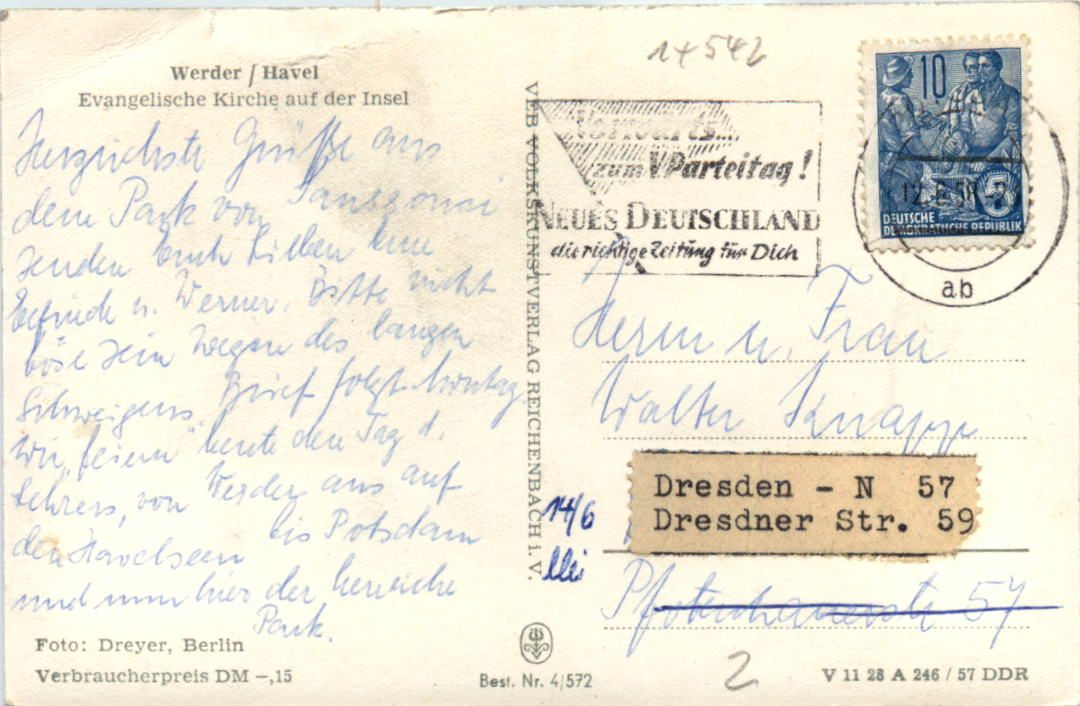 Werder / Havel
Evangelische Kirche auf der Insel
Herzlichste Grüße aus
dem Park von Sanssouci
senden Euch Lieben
u. Werner. Bitte nicht
böse sein wegen des langen
Schweigens. Brief folgt Montag.
Wir "feiern" heute den Tag d.
Lehrers, von Werder aus auf
den Havelseen bis Potsdam
und nun hier der herrliche
Park.
Foto: Dreyer, Berlin
Verbraucherpreis DM -,15
VEB VOLKSKUNSTVERLAG REICHENBACH i. V.
Best. Nr. 4/572
14542
Vorwärts...
zum V. Parteitag!
NEUES DEUTSCHLAND
die richtige Zeitung für Dich
10
5
DEUTSCHE
DEMOKRATISCHE REPUBLIK
ab
Herrn u. Frau
Walter Knapp
Dresden - N 57
Dresdner Str. 59
14/6
Pfotenhauerstr. 57
2
V 11 28 A 246 / 57 DDR